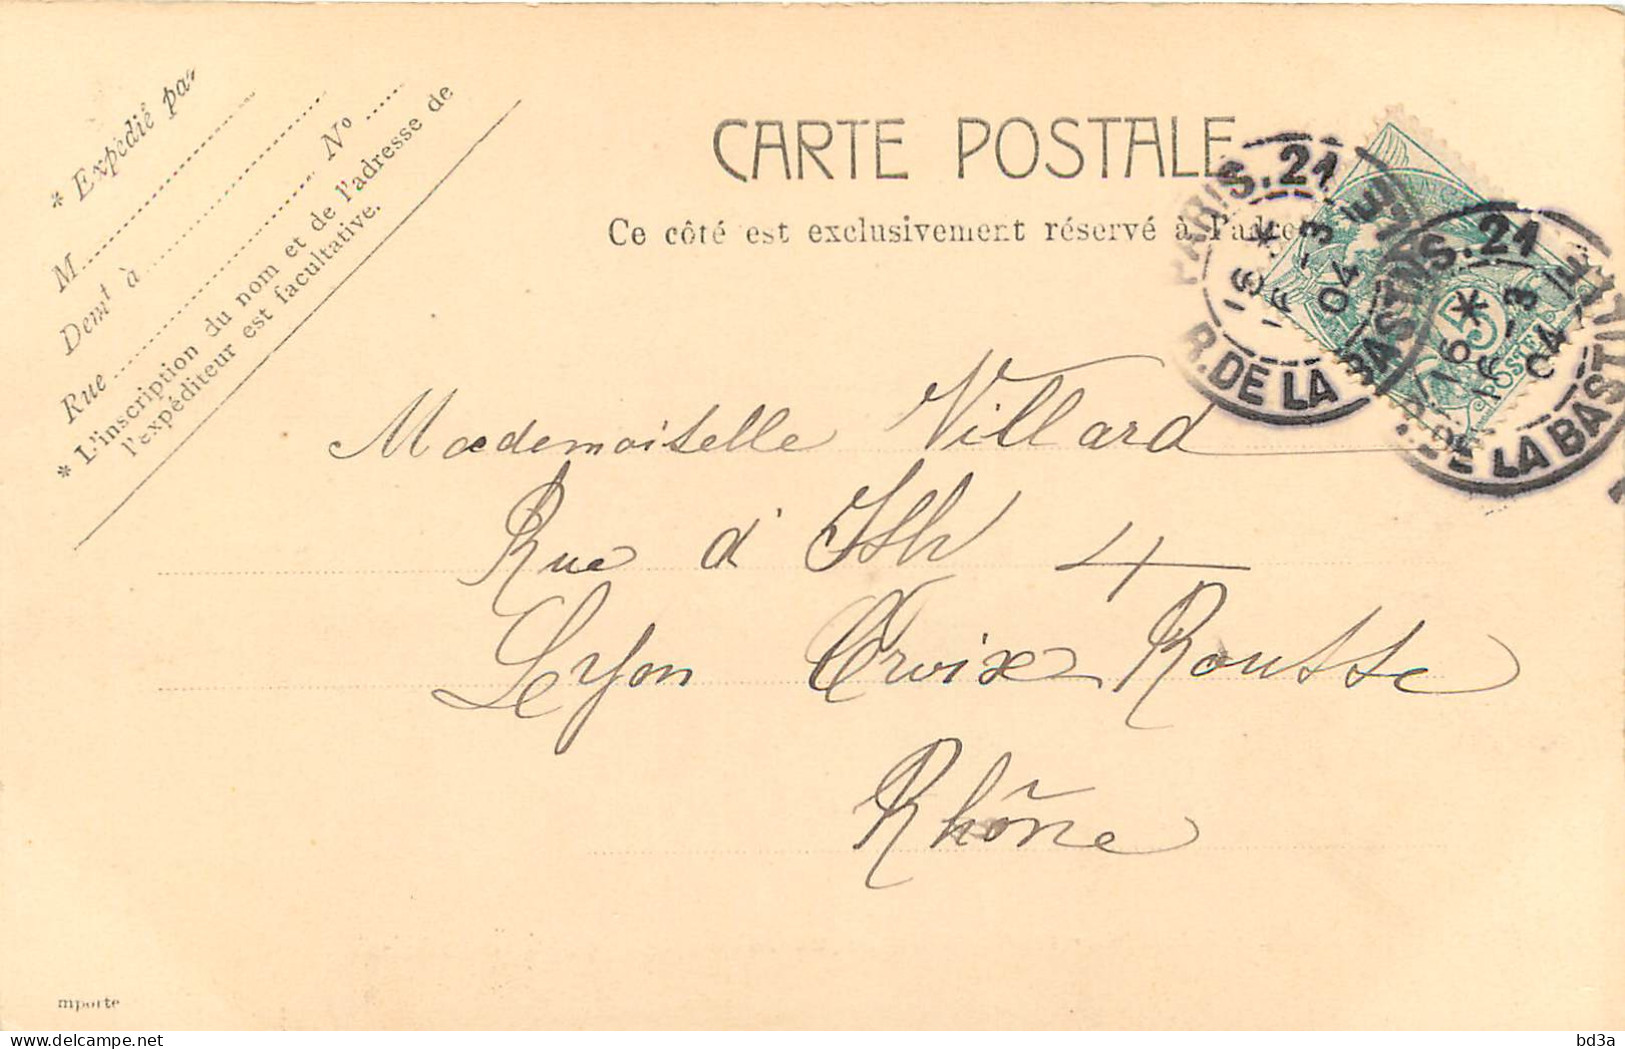 * Expédié par
M
Demt à
Rue Nº
* L'inscription du nom et de l'adresse de
l'expéditeur est facultative.
CARTE POSTALE
Ce côté est exclusivement réservé à l'adre
PARIS. 21
16 * 16 -3 04
R. DE LA BASTILLE
PARIS. 21
16 * 16 -3 04
R. DE LA BASTILLE
5
POSTE
Mademoiselle Villard
Rue d' 4
Leyon Croix Rousse
Rhône
mporte
delcampe.net
bd3a